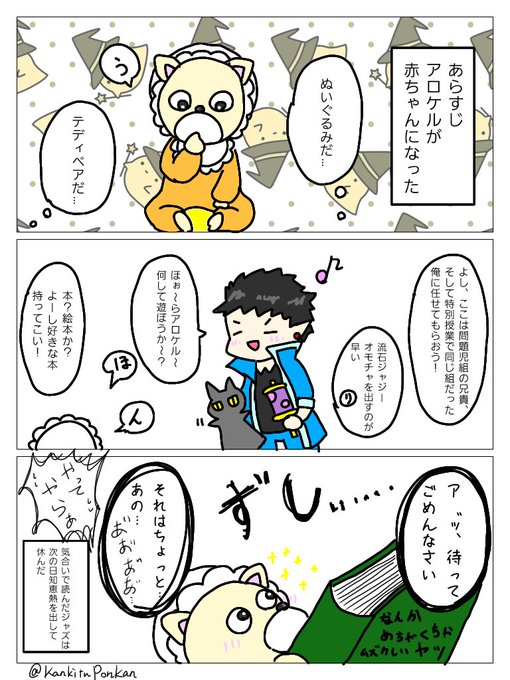 あらすじ
アロケルが
赤ちゃんになった
う
ぬいぐるみだ…
テディベアだ…
よし、ここは問題児組の兄貴、
そして特別授業で同じ組だった
俺に任せてもらおう！
流石ジャジー
オモチャを出すのが
早い
り
ほぉ〜らアロケル〜
何して遊ぼうか〜？
ほ
ん
本？絵本か？
よーし好きな本
持ってこい！
ア゛ッ、待って
ごめんなさい
ずし……
それはちょっと…
あの…
おがおがあが…
なんか
めちゃくちゃ
ムズカしいヤツ
やって
やらぁ
気合いで読んだジャズは
次の日知恵熱を出して
休んだ
@KankituPonkan